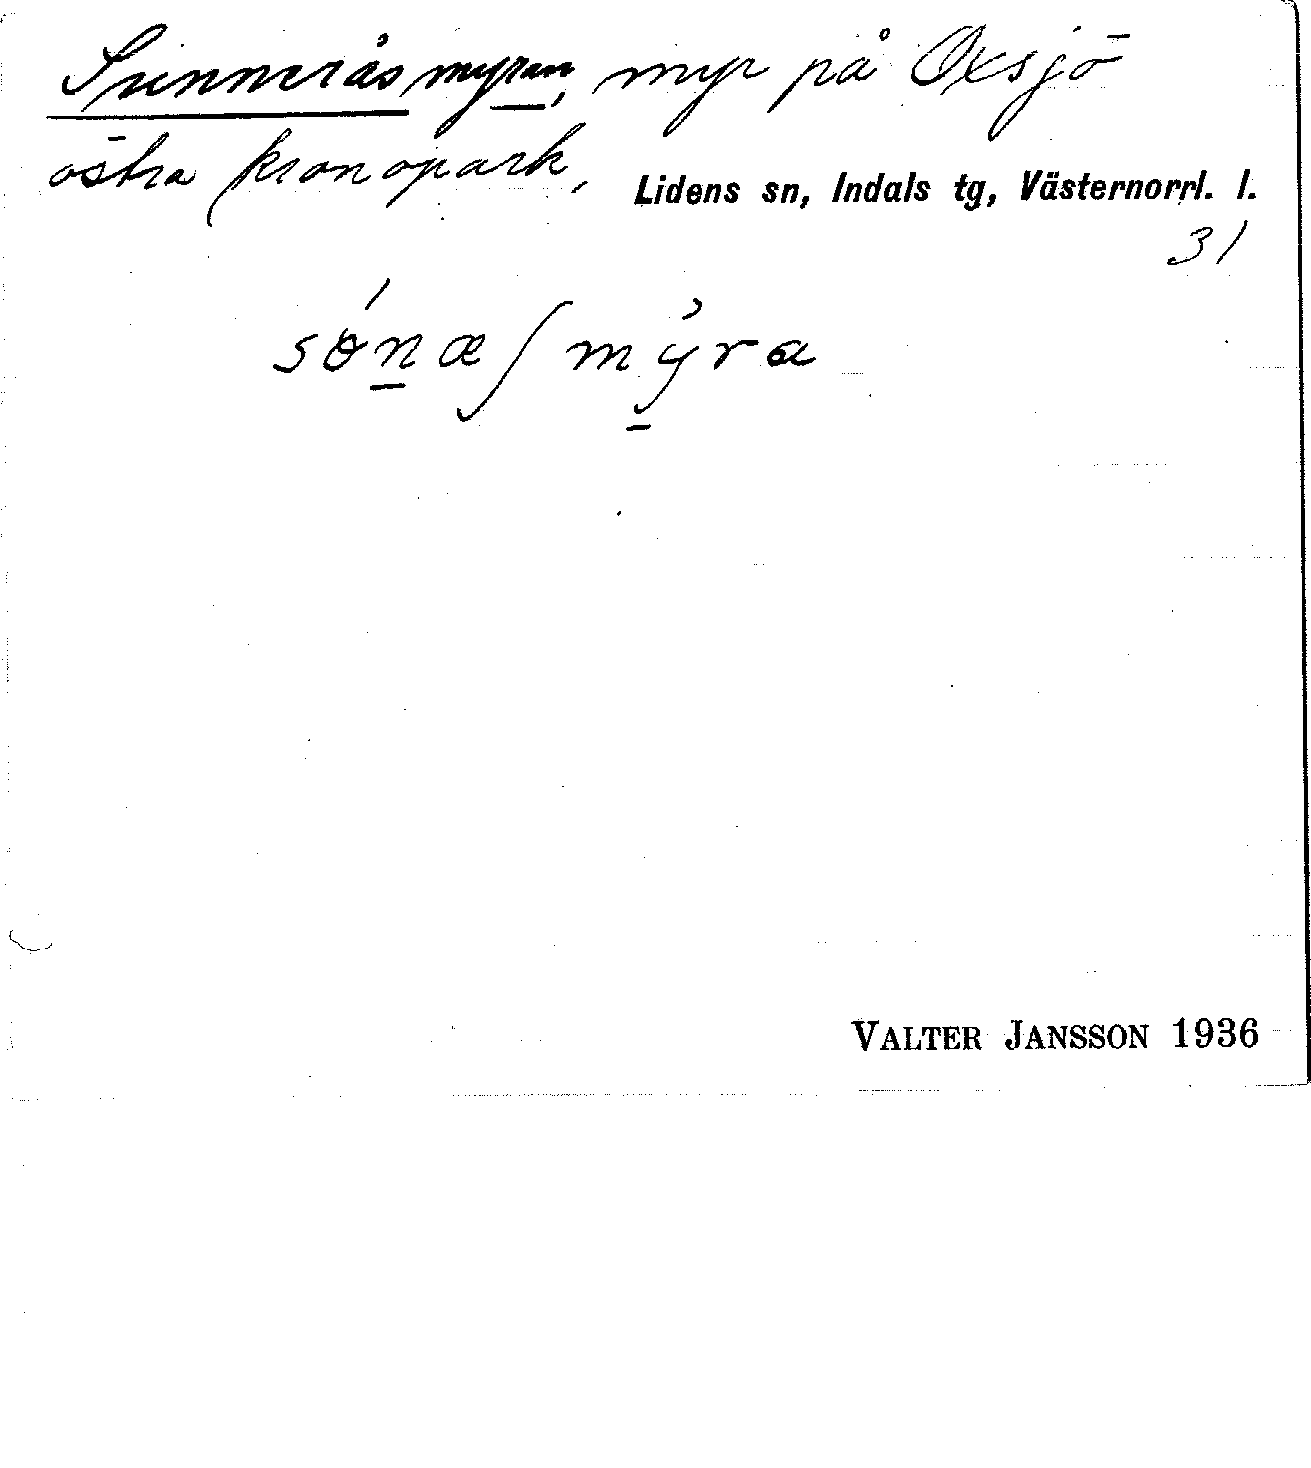 Sunneråsmyran, myr på Oxsjö
östra kronopark, Lidens sn, Indals tg, Västernorrl. l.
31
sónæʃmýra
VALTER JANSSON 1936